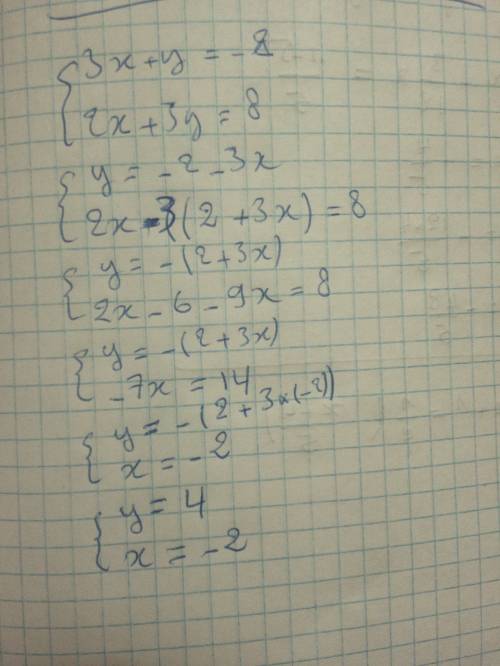 3x + y = -2
2x + 3y = 8
y = -2 - 3x
2x - 3(2 + 3x) = 8
y = -(2 + 3x)
2x - 6 - 9x = 8
y = -(2 + 3x)
-7x = 14
y = -(2 + 3×(-2))
x = -2
y = 4
x = -2